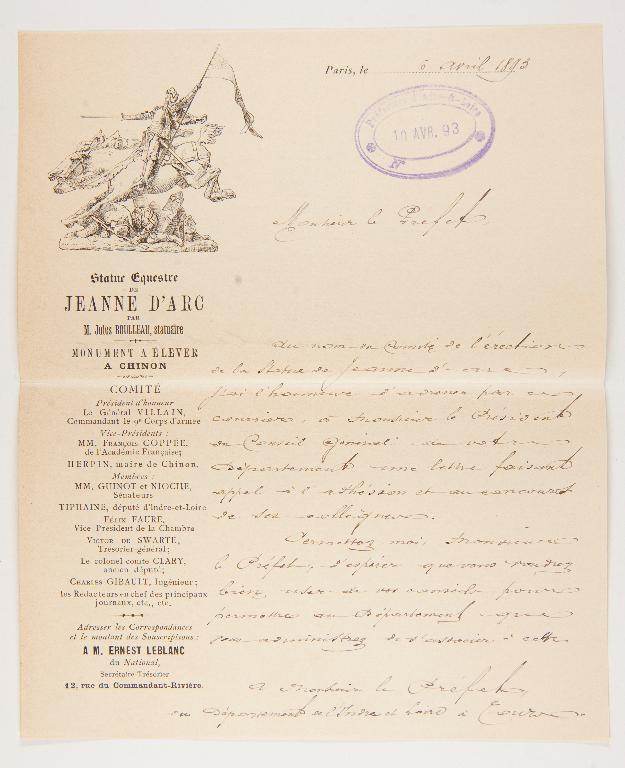 Paris, le 6 avril 1893
Préfecture d'Indre-&-Loire
10 AVR. 93
N
Monsieur le Préfet,
Statue Equestre
DE
JEANNE D'ARC
PAR
M. Jules ROULLEAU, statuaire
MONUMENT A ÉLEVER
A CHINON
COMITÉ
Président d'honneur
Le Général VILLAIN,
Commandant le 9e Corps d'armée
Vice-Présidents :
MM. FRANÇOIS COPPÉE,
de l'Académie Française;
HERPIN, maire de Chinon.
Membres :
MM. GUINOT et NIOCHE,
Sénateurs
TIPHAINE, député d'Indre-et-Loire
FÉLIX FAURE,
Vice-Président de la Chambre
VICTOR DE SWARTE,
Trésorier-général;
Le colonel comte CLARY,
ancien député;
CHARLES GIBAULT, Ingénieur;
les Rédacteurs en chef des principaux
journaux, etc., etc.
Adresser les Correspondances
et le montant des Souscriptions :
A M. ERNEST LEBLANC
du National,
Secrétaire-Trésorier
12, rue du Commandant-Rivière.
Au nom du Comité de l'érection
de la Statue de Jeanne d'arc,
j'ai l'honneur d'adresser par ce
courrier, à Monsieur le Président
du Conseil Général de votre
Département une lettre faisant
appel à l'adhésion et au concours
de ses collègues.
Permettez moi, Monsieur
le Préfet, d'espérer que vous voudrez
bien, user de vos conseils pour
permettre au Département que
vous administrez de s'associer à cette
A Monsieur le Préfet,
du Département de l'Indre et Loire à Tours